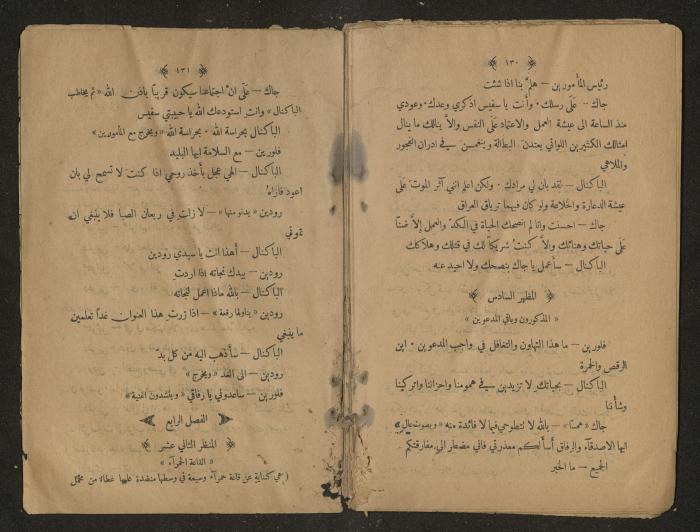 ﴿ ١٣٠ ﴾
رئيس المأمورين — هلمّ بنا اذا شئت
جاك — عَلَى رسلك. وأنت يا سفيس اذكري وعدك. وعودي
منذ الساعة الى عيشة العمل والاعتماد عَلَى النفس والاّ ينالك ما ينال
امثالك الكثيرين اللواتي يعتدن البطالة وينغمسن في ادران الفجور
والملاهي
الباكنال — لقد بان لي مرادك. ولكن اعلم انني آثر الموت عَلَى
عيشة الدعارة والخلاعة ولو كان فيهما ترياق العراق
جاك — احسنت وانا لم انصحك الحياة في الكدّ والعمل إلاّ ضنًّا
عَلَى حياتك وهنائك والاّ كنتُ شريكًا لك في قتلك وهلاكك
الباكنال — سأعمل يا جاك بنصحك ولا احيد عنه
﴿ المظهر السادس ﴾
« المذكورون وباقي المدعوين »
فلورين — ما هذا التهاون والتغافل في واجب المدعوين. اين
الرقص والخمرة
الباكنال — بحياتك لا تزيدين في همومنا واحزاننا واتركينا
وشأننا
جاك «همسًا» — بالله لا تتطوحي فيما لا فائدة منه «وبصوت عالٍ»
ايها الاصدقآء والرفاق أسألكم معذرتي فاني مضطر الى مفارقتكم
الجميع — ما الخبر
﴿ ١٣١ ﴾
جاك — عَلَى انّ اجتماعنا سيكون قريبًا باذن الله «ثم يخاطب
الباكنال» وانت استودعك الله يا حبيبتي سفيس
الباكنال بحراسة الله. بحراسة الله «ويخرج مع المأمورين»
فلورين — مع السلامة ايها البليد
الباكنال — الهي عجل بأخذ روحي اذا كنت لا تسمح لي بان
اعود فاراهُ
رودين «يدنو منها» — لا زلتِ في ريعان الصبا فلا ينبغي ان
تموتي
الباكنال — أهذا انت يا سيدي رودين
رودين — بيدك نجاته اذا اردتِ
الباكنال — بالله ماذا اعمل لنجاته
رودين «يناولها رقعة» — اذا زرتِ هذا العنوان غدًا تعلمين
ما ينبغي
الباكنال — سأذهب اليه من كل بدّ
رودين — الى الغد «ويخرج»
فلورين — ساعدوني يا رفاقي «وينشدون اغنية»
الفصل الرابع
﴿ المنظر الثاني عشر ﴾
« القاعة الحمرآء »
(هي كناية عن قاعة حمرآء وسيعة في وسطها منضدة عليها غطاء من مخمل